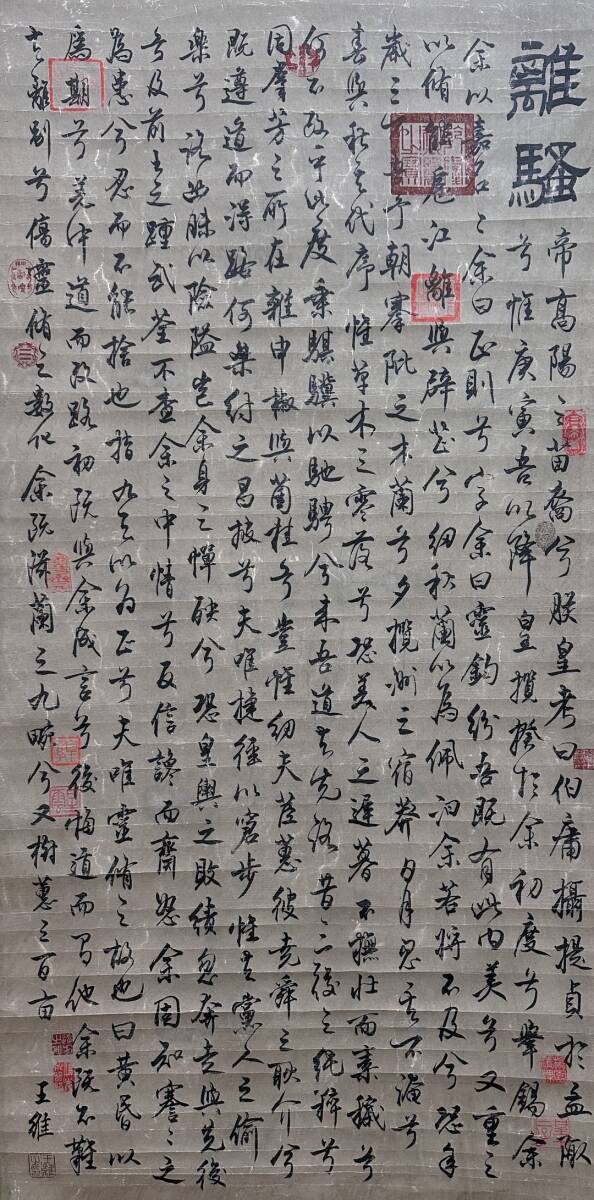 離騷
帝高陽〻苗裔兮朕皇考曰伯庸攝提貞於孟陬
兮惟庚寅吾以降皇攬揆於余初度兮肇錫余
余以嘉名〻余曰正則兮字余曰靈鈞紛吾既有此內美兮又重之
以脩能扈江離與辟芷兮紉秋蘭以為佩汩余若將不及兮恐年
歲之不吾与朝搴阰之木蘭兮夕攬洲之宿莽日月忽其不淹兮
春與秋其代序惟草木之零落兮恐美人之遲暮不撫壯而棄穢兮
何不改乎此度乘騏驥以馳騁兮来吾道夫先路昔三後之純粹兮
固羣芳之所在雜申椒與菌桂兮豈惟紉夫茝蕙彼堯舜之耿介兮
既遵道而得路何桀紂之昌披兮夫唯捷徑以窘步惟夫黨人之偷
樂兮路幽昧以險隘豈余身之憚殃兮恐皇輿之敗績忽奔走與先後
兮及前王之踵武荃不查余之中情兮反信讒而齌怒余固知謇〻之
為患兮忍而不能捨也指九天以為正兮夫唯靈脩之故也曰黃昏以
為期兮羌中道而改路初既與余成言兮後悔遁而有他余既不難
夫離別兮傷靈脩之數化余既滋蘭之九畹兮又樹蕙之百亩
王維